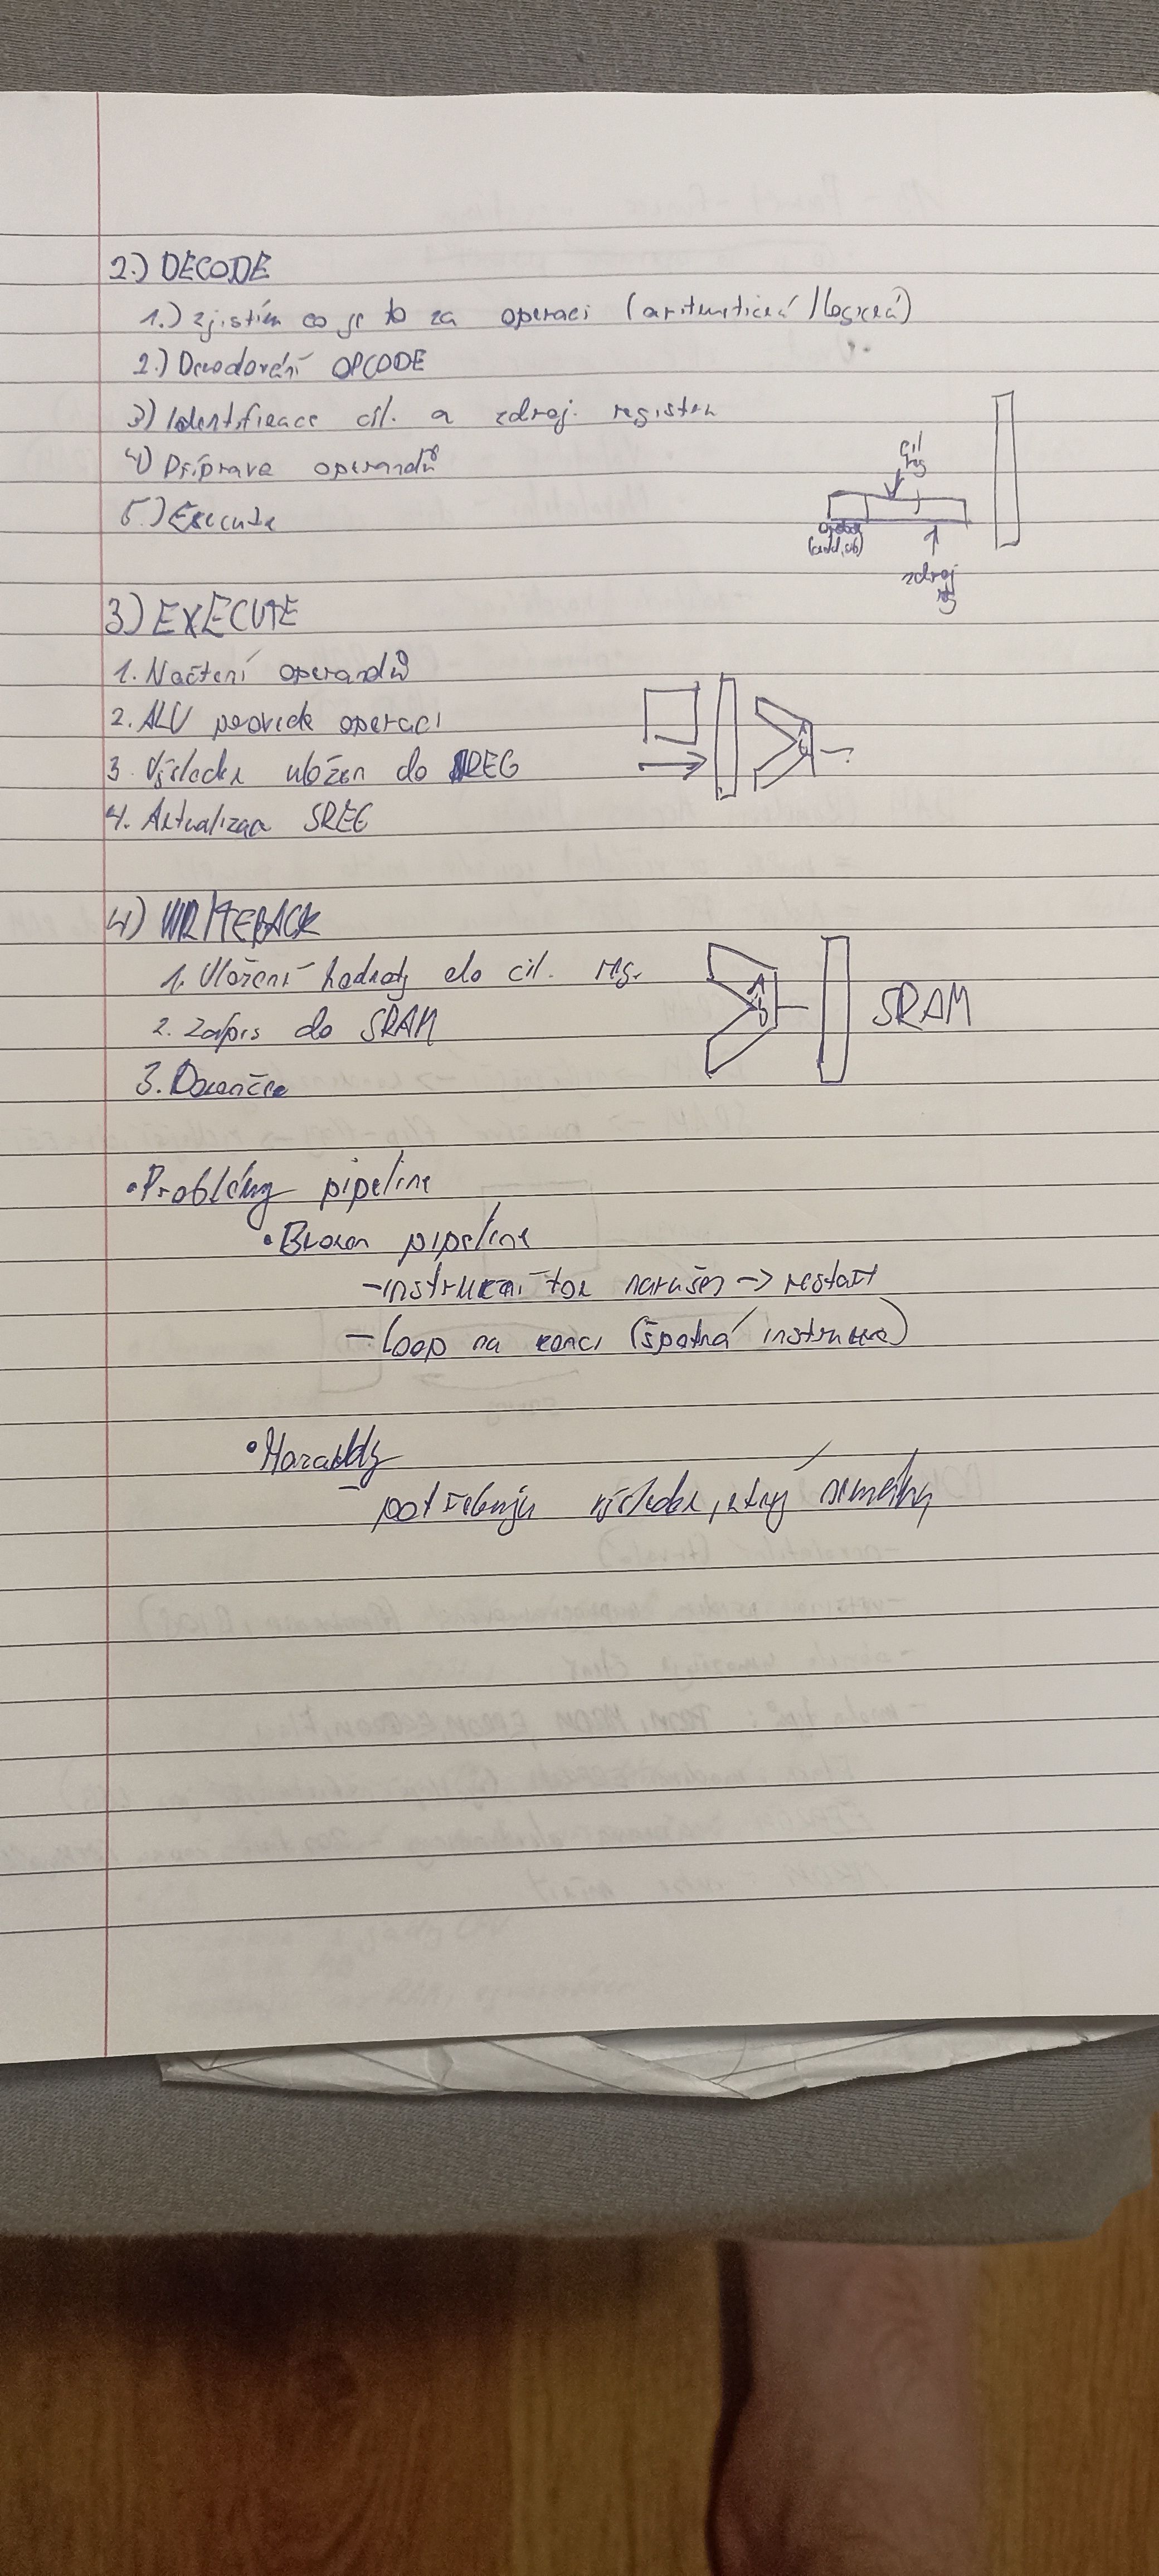 2.) DECODE
1.) zjistím co je to za operaci (aritmetická / logická)
2.) Dekodování OPCODE
3) Identifikace cíl. a zdroj. registru
4) Příprava operandů
5.) Execute
cíl
rg
opcode
(add, sub)
zdroj
rg
3) EXECUTE
1. Načtení operandů
2. ALU provede operaci
3. Výsledek uložen do REG
4. Aktualizace SREG
4) WRITEBACK
1. Uložení hodnoty do cíl. reg.
2. Zápis do SRAM
3. Dokončeno
SRAM
• Problémy pipeline
• Broken pipeline
- instrukční tok narušen -> restart
- Loop na konci (špatná instrukce)
• Hazardy
- potřebuju výsledek, který nemáme